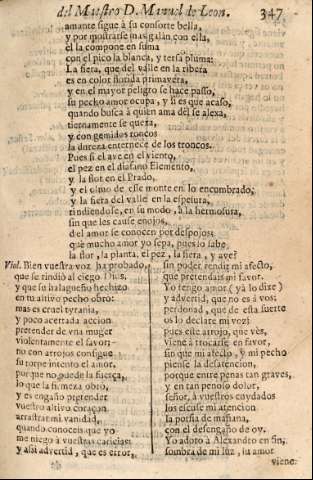 del Maestro D. Manuel de Leon. 347
amante sigue à su consorte bella,
y por mostrarse mas galàn con ella,
el la compone en suma
con el pico la blanca, y tersa pluma:
La fiera, que del valle en la ribera
es en color florida primavera,
y en el mayor peligro se hace passo,
su pecho amor ocupa, y si es que acaso,
quando busca à quien ama del se alexa,
tiernamente se quexa,
y con gemidos roncos
la dureza enternece de los troncos.
Pues si el ave en el viento,
el pez en el diafano Elemento,
y la flor en el Prado,
y el olmo de esse monte en lo encombrado;
y la fiera del valle en la espesura,
rindiendose, en su modo, à la hermosura,
sin que les cause enojos,
del amor se conocen por despojos:
què mucho amor yo sepa, pues lo sabe,
la flor, la planta, el pez, la fiera, y ave?
Viol. Bien vuestra voz ha probado,
que se rindiò al ciego Dios,
y que su halagueño hechizo
en tu altivo pecho obrò:
mas es cruel tyrania,
y poco acertada accion
pretender de una muger
violentamente el favor;
no con arrojos consigue
su torpe intento el amor,
porque no puede la fuerça,
lo que la firmeza obrò,
y es engaño pretender
vuestro altivo coraçon
arrastrar mi vanidad,
quando conoceis que yo
me niego à vuestras caricias;
y assi advertid, que es error,
sin poder rendir mi afecto,
que pretendais mi favor.
Yo tengo amor (ya lo dixe)
y advertid, que no es à vos;
perdonad, que de esta suerte
os lo declare mi voz:
pues este arrojo, que vès,
viene à trocarse en favor,
sin que mi afecto, y mi pecho
piense la desatencion,
porque entre penas tan graves,
y en tan penoso dolor,
señor, à vuestros cuydados
los escuse mi atencion
la porfia de mañana,
con el desengaño de oy.
Yo adoro à Alexandro en fin,
sombra de mi luz, su amor
viene